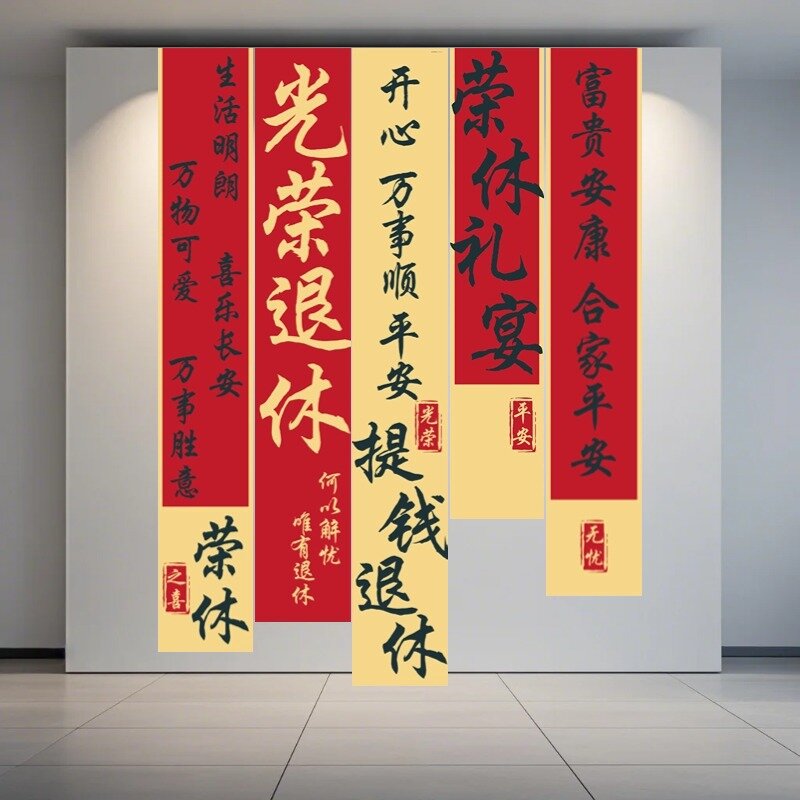 生活明朗 喜乐长安
万物可爱 万事胜意
荣休
之喜
光荣退休
何以解忧
唯有退休
开心 万事顺平安
光荣
提钱退休
荣休礼宴
平安
富贵安康 合家平安
无忧